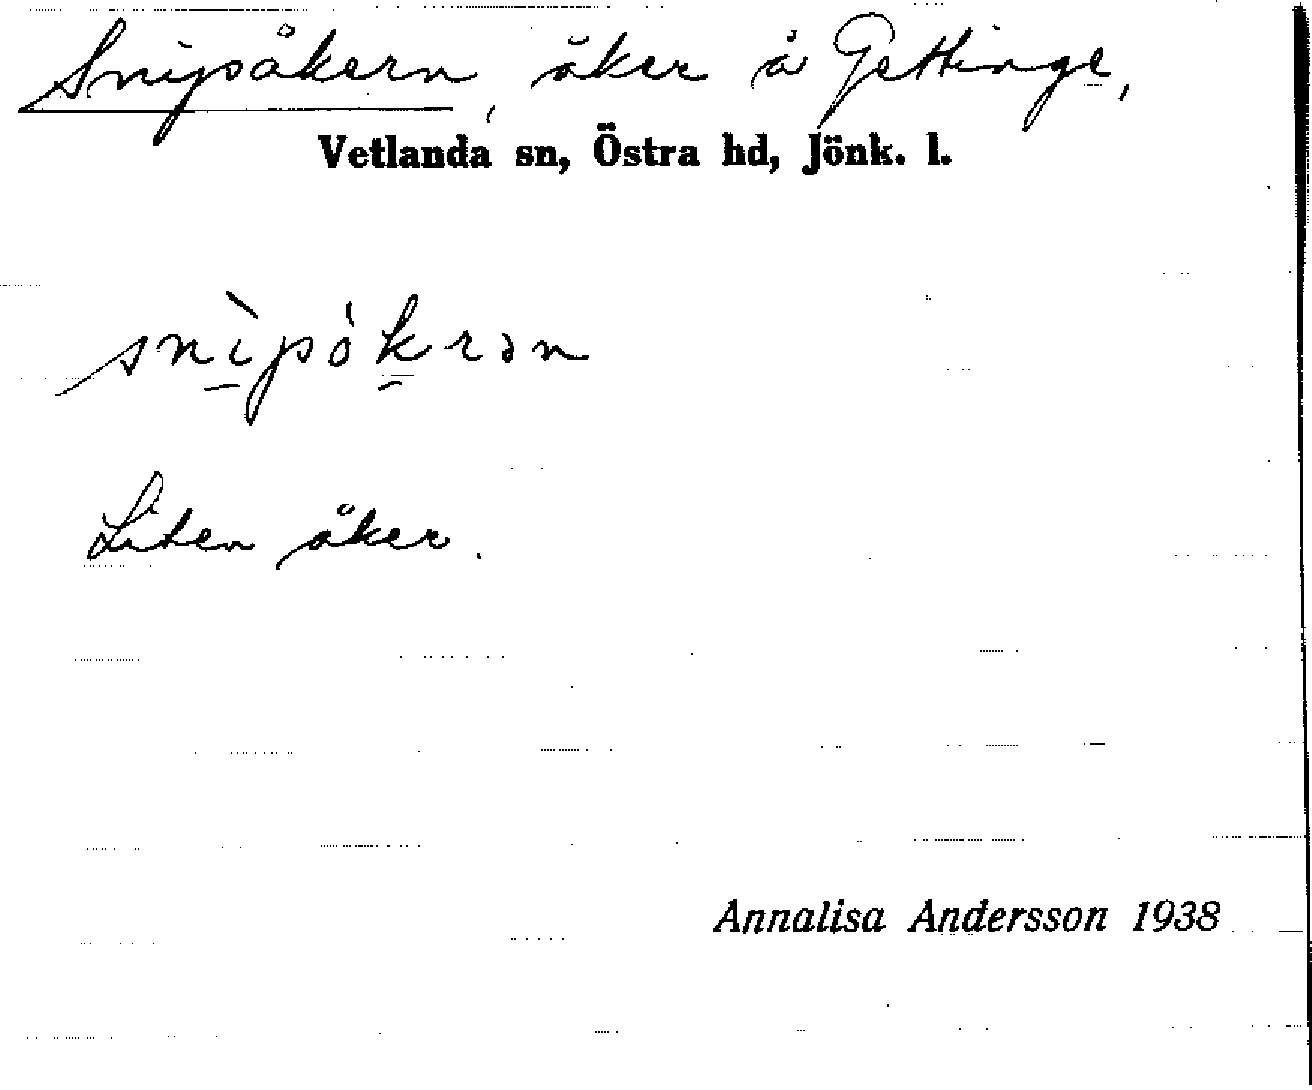 Snipsåkern, åker å Gettinge,
Vetlanda sn, Östra hd, Jönk. l.
snìpòkrən
Liten åker.
Annalisa Andersson 1938